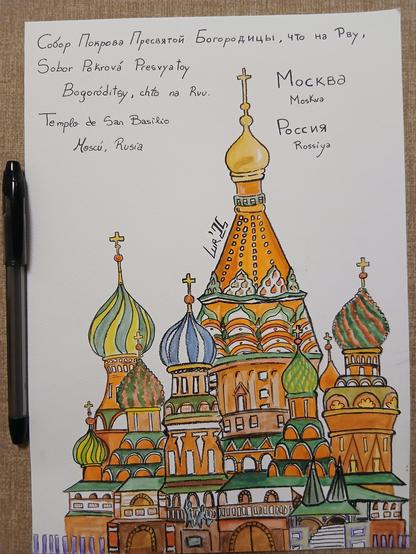 Собор Покрова Пресвятой Богородицы, что на Рву,
Sobor Pokrová Presvyatoy
Bogoróditsy, chto na Rvu.
Templo de San Basilio
Moscú, Rusia
Москва
Moskva
Россия
Rossiya